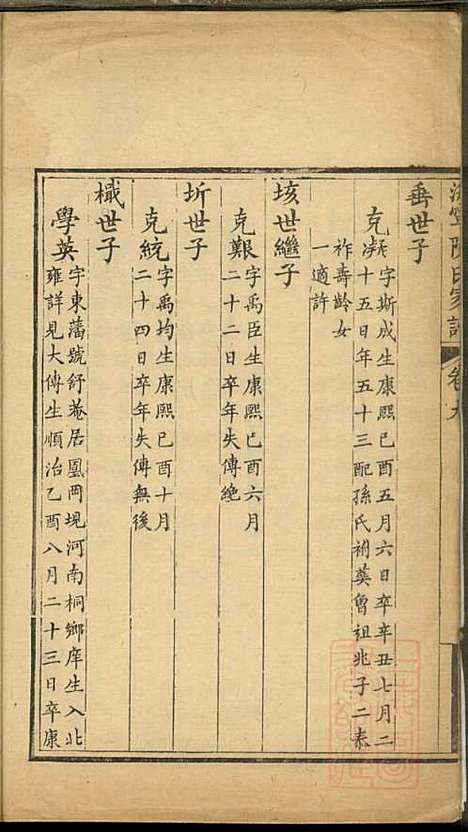 海寧陳氏家譜 卷九
垂世子
克凝 字斯成生康熙己酉五月六日卒辛丑七月二
十五日年五十三配孫氏祔葬魯祖兆子二泰
祚壽齡女
一適許
垓世繼子
克艱 字禹臣生康熙己酉六月
二十二日卒年失傳絶
圻世子
克統 字禹均生康熙己酉十月
二十四日卒年失傳無後
樴世子
學英 字東藩號舒菴居鳳岡現河南桐鄉庠生入北
雍詳見大傳生順治乙酉八月二十三日卒康